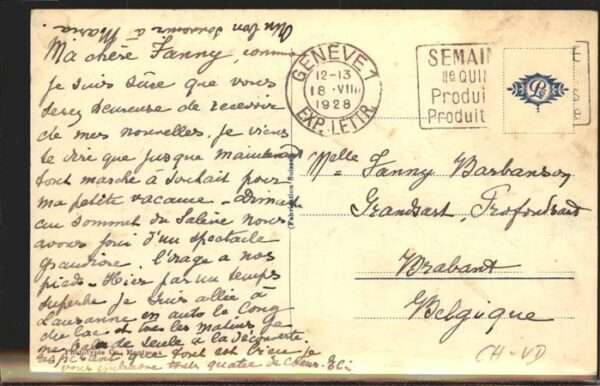 Un bon souvenir à Maria.
Ma chère Fanny, comme
je suis sûre que vous
serez heureuse de recevoir
de mes nouvelles, je viens
te dire que jusque maintenant
tout marche à souhait pour
ma petite vacance. Dimanche
au sommet du Salève nous
avons joui d'un spectacle
grandiose. L'orage a nos
pieds. Hier par un temps
superbe je suis allée à
Lausanne en auto le long
du lac et tous les matins je
me de seule a la découverte.
tout est bien je
vous embrasse toutes quatre de cœur.
GENÈVE 1
12-13
18 .VIII.
1928
EXP. LETTR.
SEMAI E
IIe QUI
Produi s
Produit e
(Fabrication Suisse)
Melle Fanny Barbanson
Grandsart,
Brabant
Belgique
CH-VD
Phototypie Co., Montreux